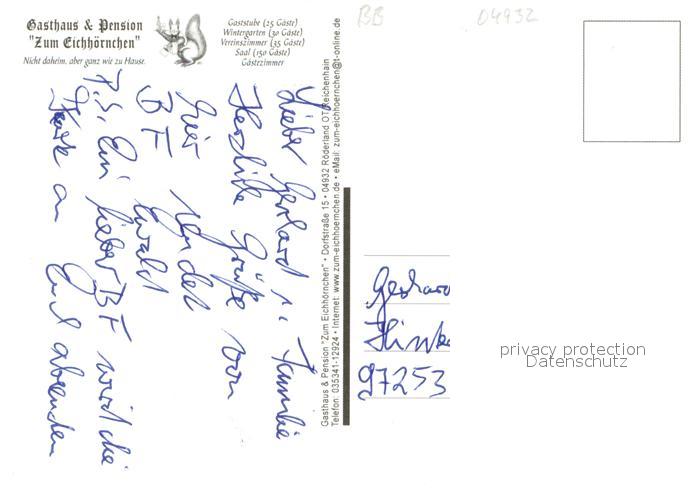 Gasthaus & Pension
"Zum Eichhörnchen"
Nicht daheim, aber ganz wie zu Hause.
Gaststube (25 Gäste)
Wintergarten (30 Gäste)
Vereinszimmer (35 Gäste)
Saal (150 Gäste)
Gästezimmer
BB
04932
Lieber Gerhard u. Familie
Herzliche Grüße von
hier
BF Ewald
P.S. Ein lieber BF wird die
Karte an Euch absenden
Gasthaus & Pension "Zum Eichhörnchen" • Dorfstraße 15 • 04932 Röderland OT Reichenhain
Telefon: 035341-12924 • Internet: www.zum-eichhoernchen.de • eMail: zum-eichhoernchen@t-online.de
Gerhard
97253
privacy protection
Datenschutz